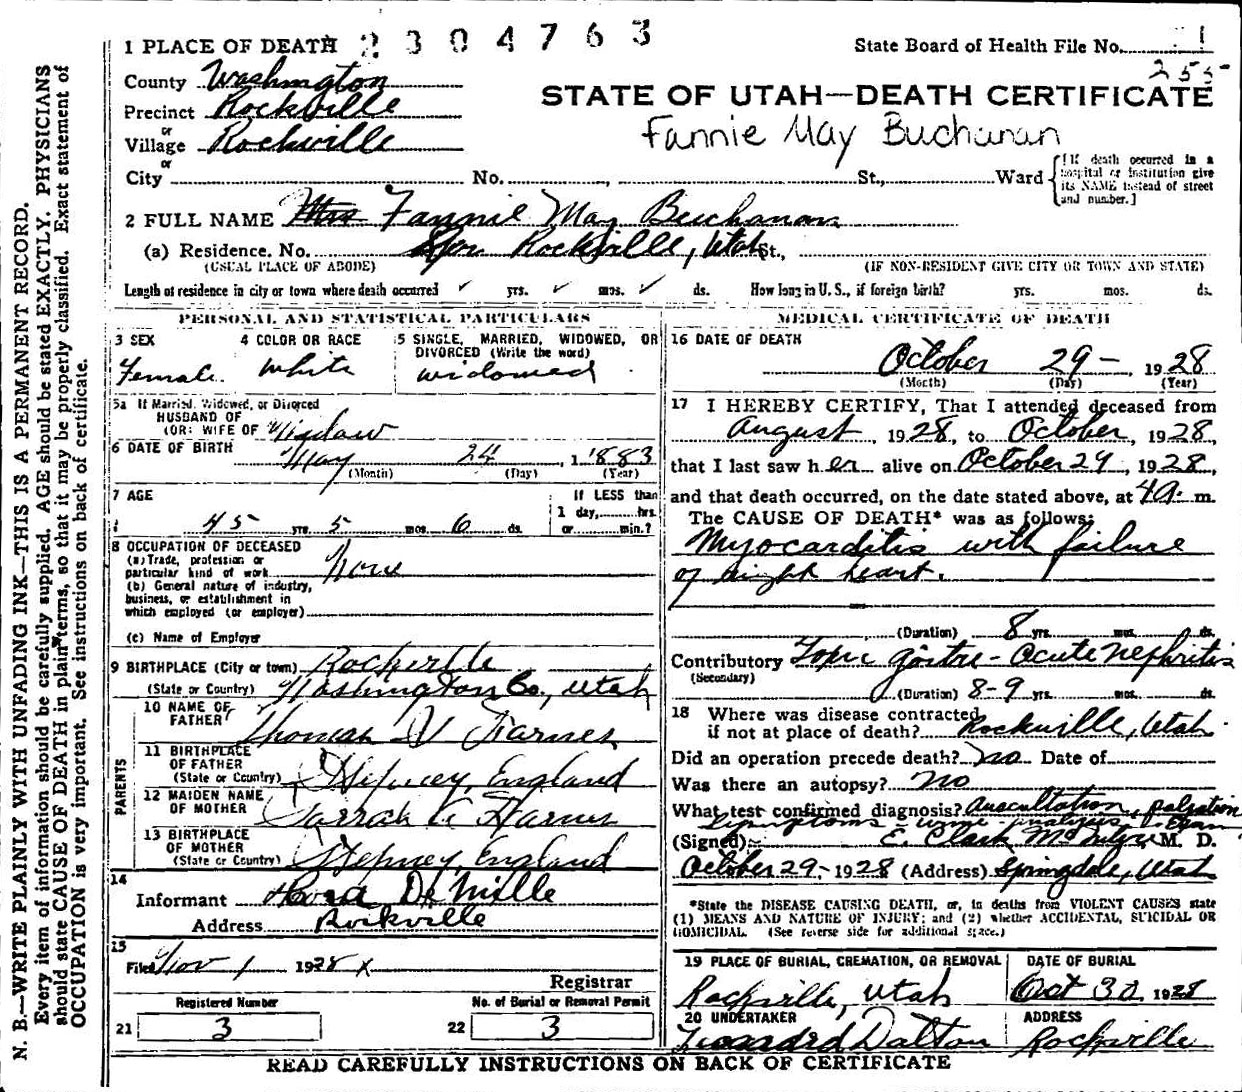 1 PLACE OF DEATH 2304763
State Board of Health File No. 1
255
County Washington
STATE OF UTAH—DEATH CERTIFICATE
Precinct Rockville
Fannie May Buchanan
or
Village Rockville
or
City No. , St., Ward
[If death occurred in a hospital or institution give its NAME instead of street and number.]
2 FULL NAME Mrs Fannie May Buchanan
(a) Residence. No. Rockville, Utah St.,
(USUAL PLACE OF ABODE) (IF NON-RESIDENT GIVE CITY OR TOWN AND STATE)
Length of residence in city or town where death occurred ✓ yrs. ✓ mos. ✓ ds. How long in U. S., if foreign birth? yrs. mos. ds.
PERSONAL AND STATISTICAL PARTICULARS
3 SEX
Female
4 COLOR OR RACE
White
5 SINGLE, MARRIED, WIDOWED, OR
DIVORCED (Write the word)
widowed
5a If Married, Widowed, or Divorced
HUSBAND OF
(OR) WIFE OF
6 DATE OF BIRTH May 24, 1883
(Month) (Day) (Year)
7 AGE
45 yrs. 5 mos. 6 ds.
If LESS than
1 day, hrs.
or min.?
8 OCCUPATION OF DECEASED
(a) Trade, profession or
particular kind of work None
(b) General nature of industry,
business, or establishment in
which employed (or employer)
(c) Name of Employer
9 BIRTHPLACE (City or town) Rockville
(State or Country) Washington Co., Utah
PARENTS
10 NAME OF
FATHER Thomas W Farnes
11 BIRTHPLACE
OF FATHER
(State or Country) Stepney, England
12 MAIDEN NAME
OF MOTHER
13 BIRTHPLACE
OF MOTHER
(State or Country) Stepney, England
14
Informant DeMille
Address Rockville
15
Filed Nov 1 1928 x
Registrar
Registered Number
21 3
No. of Burial or Removal Permit
22 3
MEDICAL CERTIFICATE OF DEATH
16 DATE OF DEATH
October 29 - 1928
(Month) (Day) (Year)
17 I HEREBY CERTIFY, That I attended deceased from
August, 1928, to October, 1928,
that I last saw her alive on October 29, 1928,
and that death occurred, on the date stated above, at 4 a. m.
The CAUSE OF DEATH* was as follows:
Myocarditis with failure
of right heart.
(Duration) 8 yrs. mos. ds.
Contributory Toxic goitre - Acute nephritis
(Secondary)
(Duration) 8-9 yrs. mos. ds.
18 Where was disease contracted
if not at place of death? Rockville, Utah
Did an operation precede death? no Date of
Was there an autopsy? no
What test confirmed diagnosis? Auscultation, palpation
Symptoms urine analysis, Exam
(Signed) E. Clark M. D.
October 29, 1928 (Address) Springdale, Utah
*State the DISEASE CAUSING DEATH, or, in deaths from VIOLENT CAUSES state
(1) MEANS AND NATURE OF INJURY; and (2) whether ACCIDENTAL, SUICIDAL OR
HOMICIDAL. (See reverse side for additional space.)
19 PLACE OF BURIAL, CREMATION, OR REMOVAL
Rockville, Utah
DATE OF BURIAL
Oct 30 1928
20 UNDERTAKER
Dalton
ADDRESS
Rockville
READ CAREFULLY INSTRUCTIONS ON BACK OF CERTIFICATE
N. B.—WRITE PLAINLY WITH UNFADING INK—THIS IS A PERMANENT RECORD.
Every item of information should be carefully supplied. AGE should be stated EXACTLY. PHYSICIANS
should state CAUSE OF DEATH in plain terms, so that it may be properly classified. Exact statement of
OCCUPATION is very important. See instructions on back of certificate.